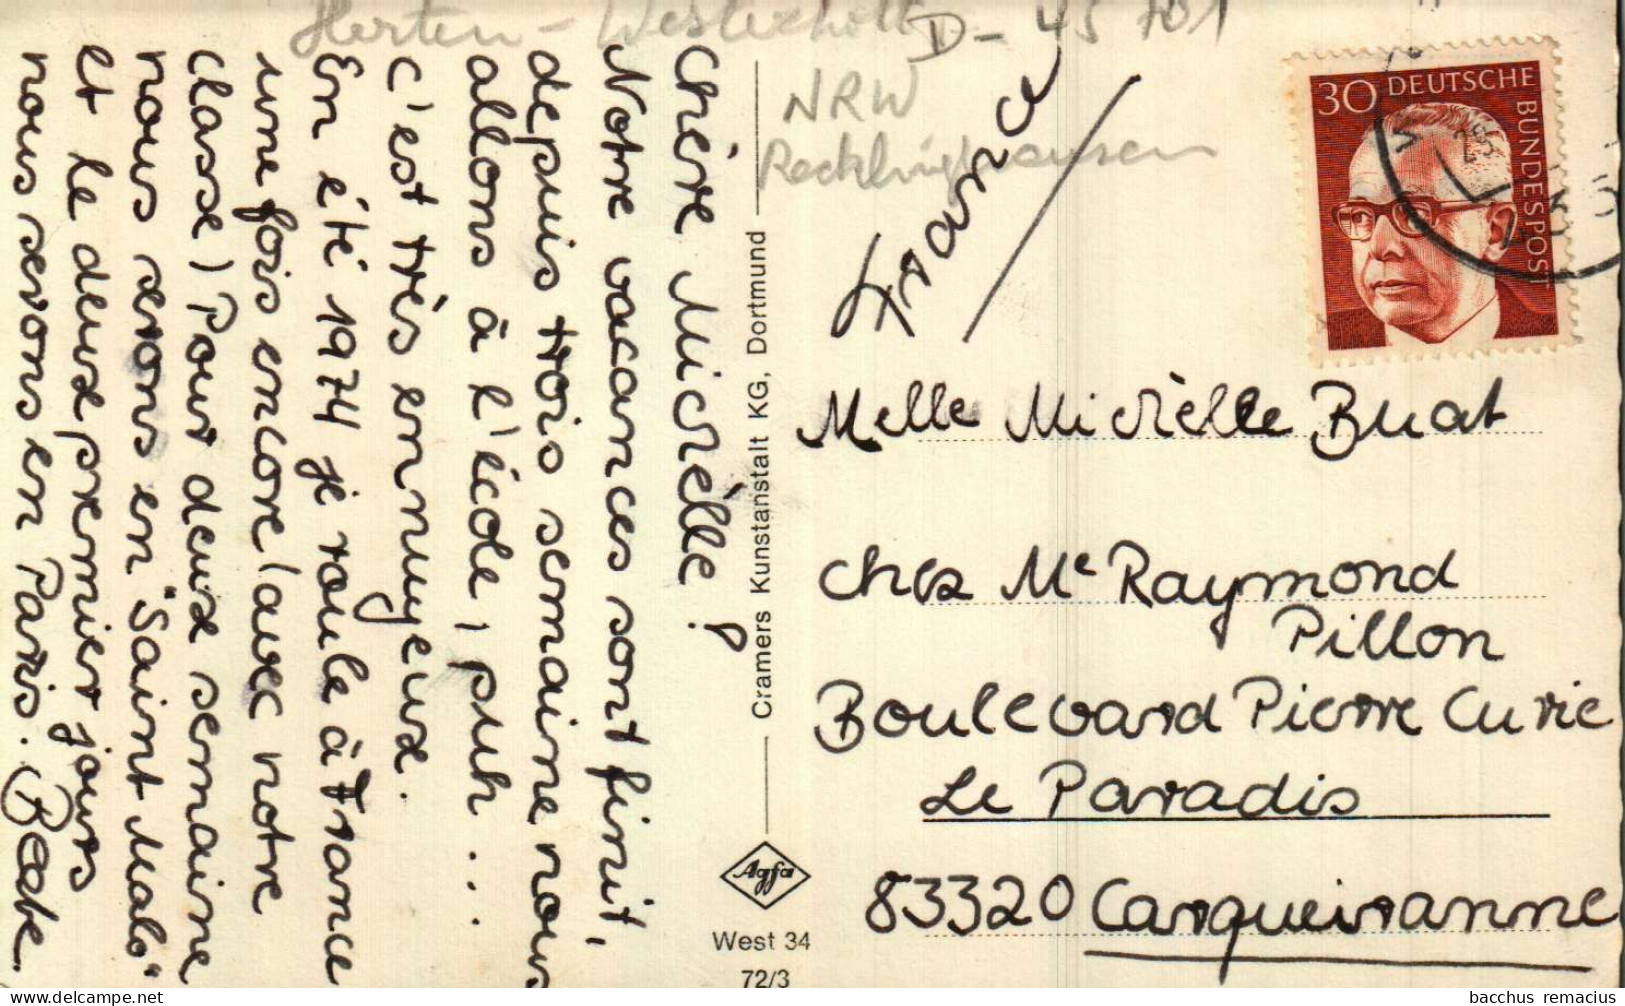 Herten - Westerholt D- 45 701
NRW
Recklinghausen
Chère Michèlle!
Notre vacances sont finit,
depuis trois semaine nous
allons à l'école, puh...
c'est très ennuyeux.
En été 1974 je roule à France
une fois encore (avec notre
classe) Pour deux semaine
nous serons en "Saint Malo"
et le deux premier jours
nous serons en Paris. Beate
Cramers Kunstanstalt KG, Dortmund
Agfa
West 34
72/3
30 DEUTSCHE BUNDESPOST
France
Melle Michèlle Buat
chez Me Raymond
Pillon
Boulevard Pierre Curie
Le Paradis
83320 Carqueiranne
bacchus remacius